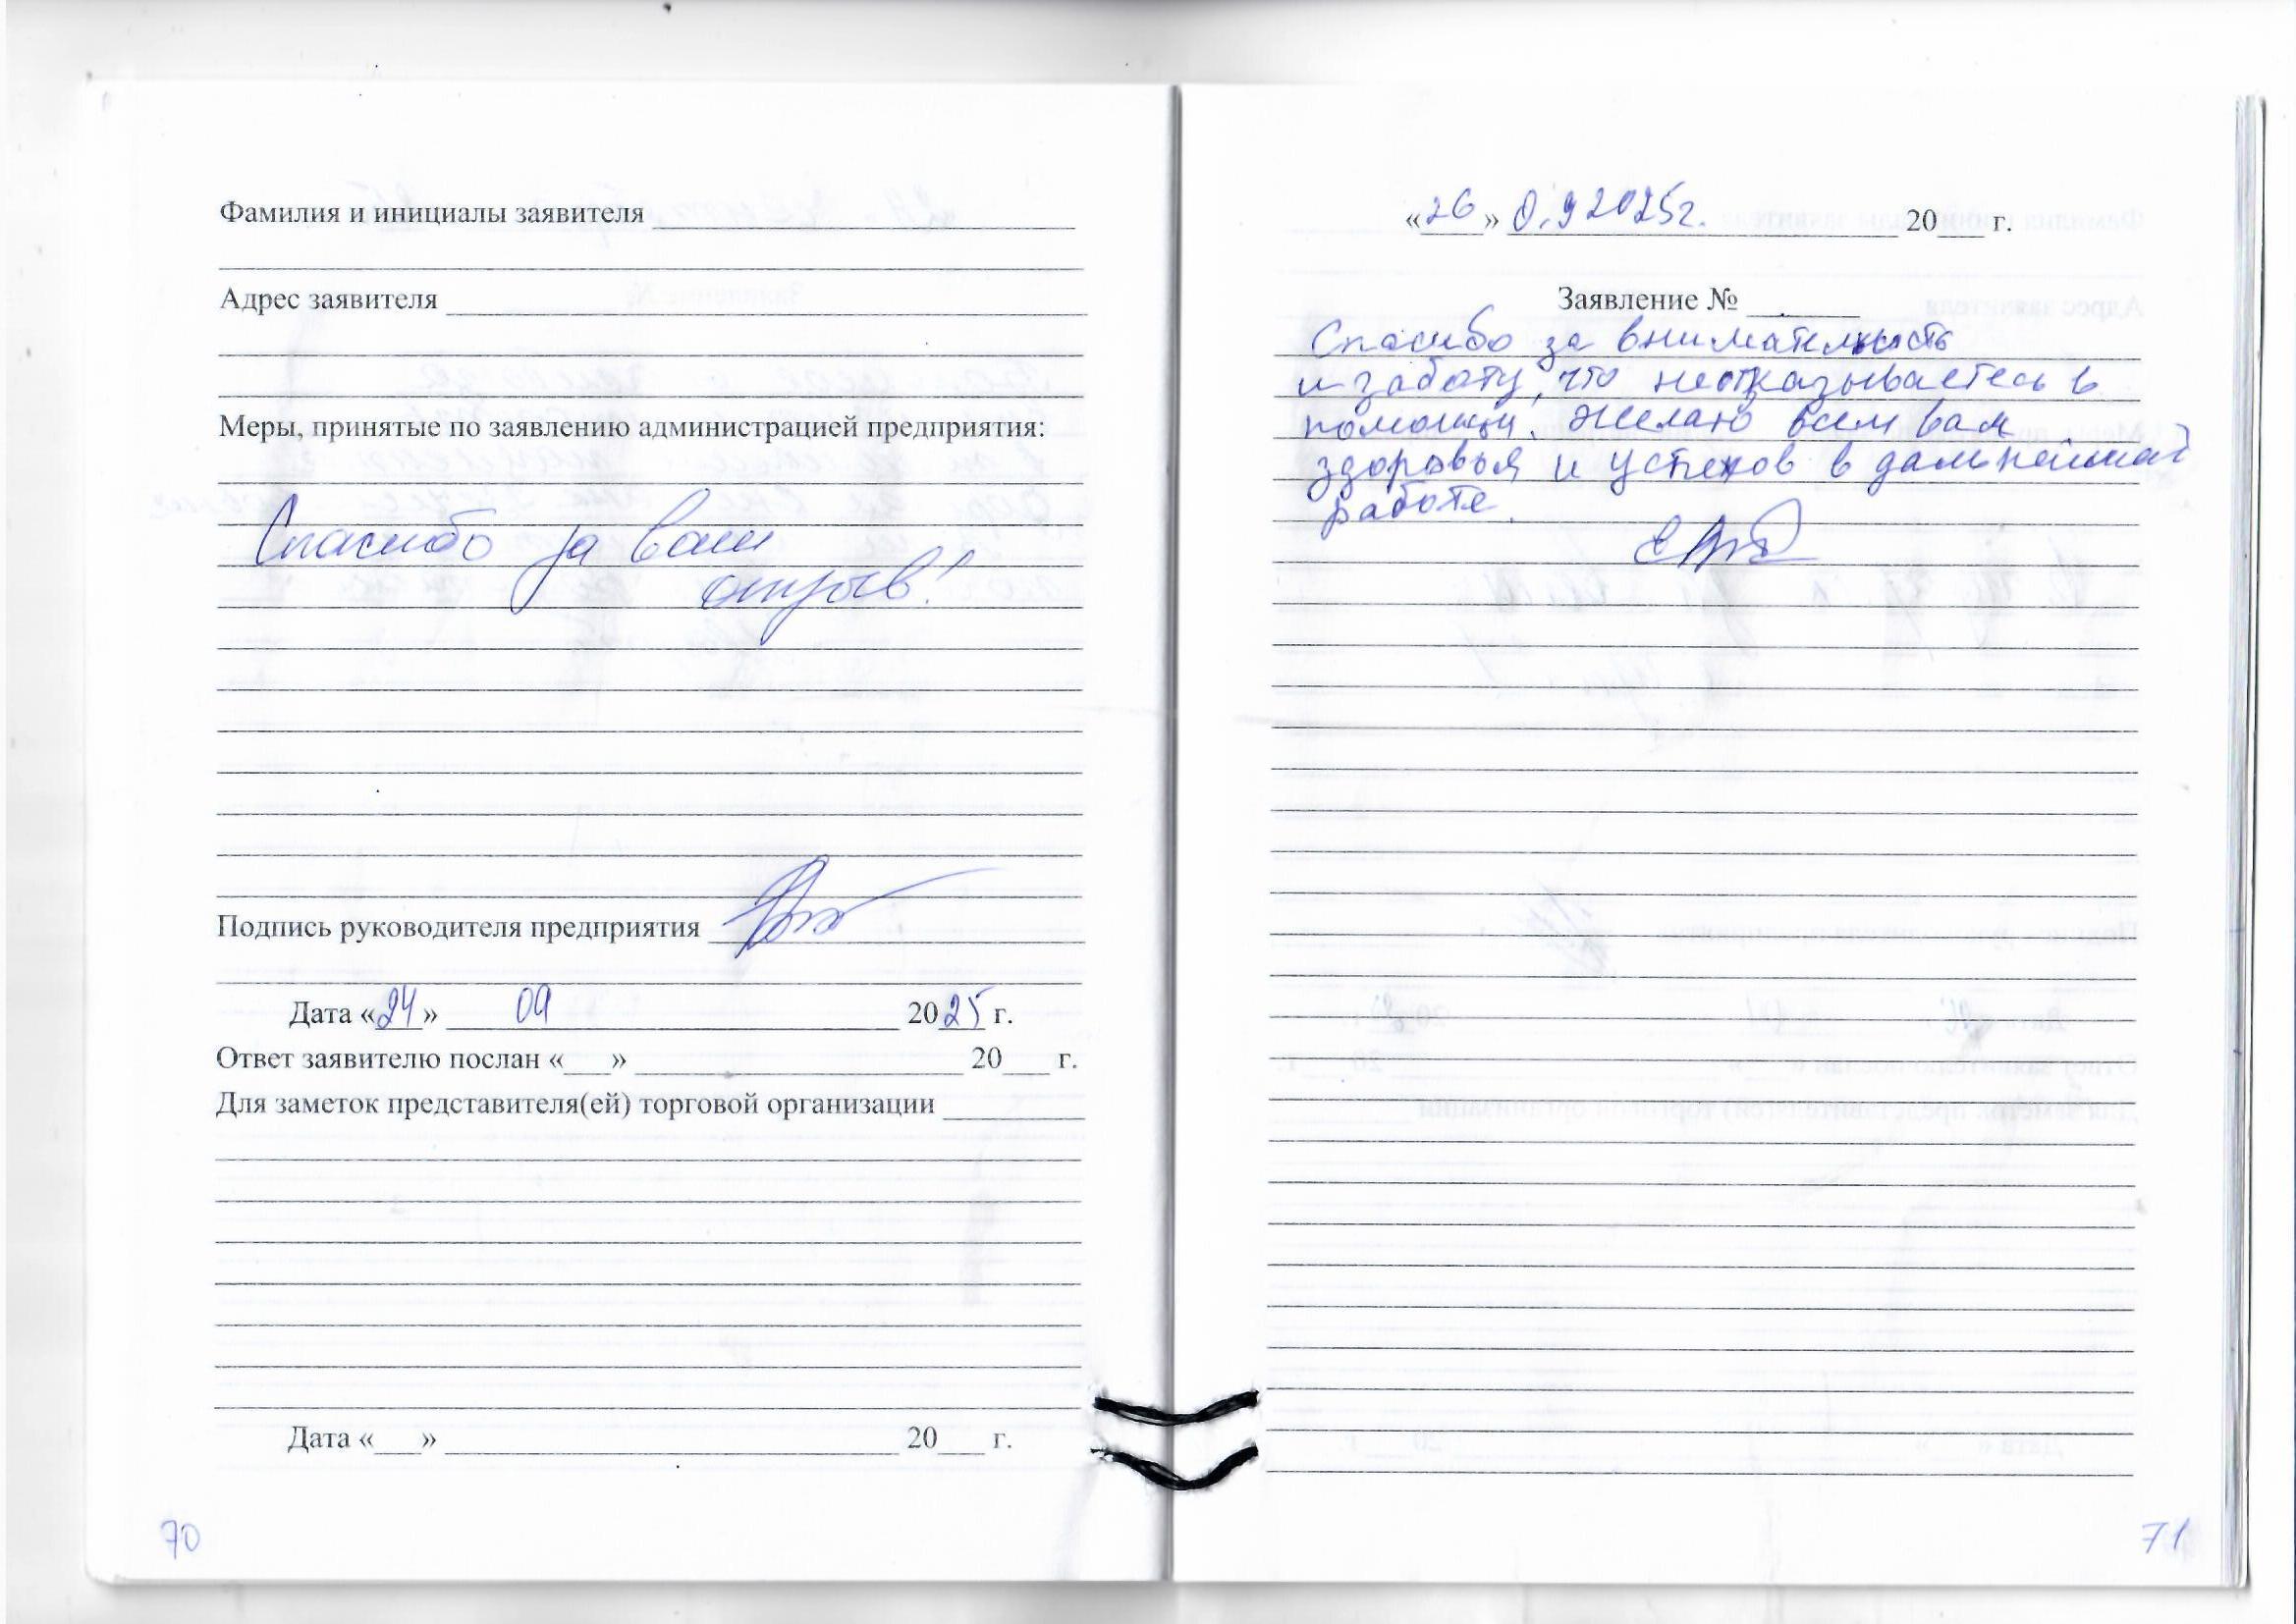 Фамилия и инициалы заявителя
Адрес заявителя
Меры, принятые по заявлению администрацией предприятия:
Спасибо за ваш
отзыв!
Подпись руководителя предприятия
Дата «24» 09 2025 г.
Ответ заявителю послан «___» 20___ г.
Для заметок представителя(ей) торговой организации
Дата «___» 20___ г.
70
«26» 0.9 2025г. 20___ г.
Заявление № ______
Спасибо за внимательность
и заботу, что неотказываетесь в
помощи. Желаю всем вам
здоровья и успехов в дальнейшей
работе.
71